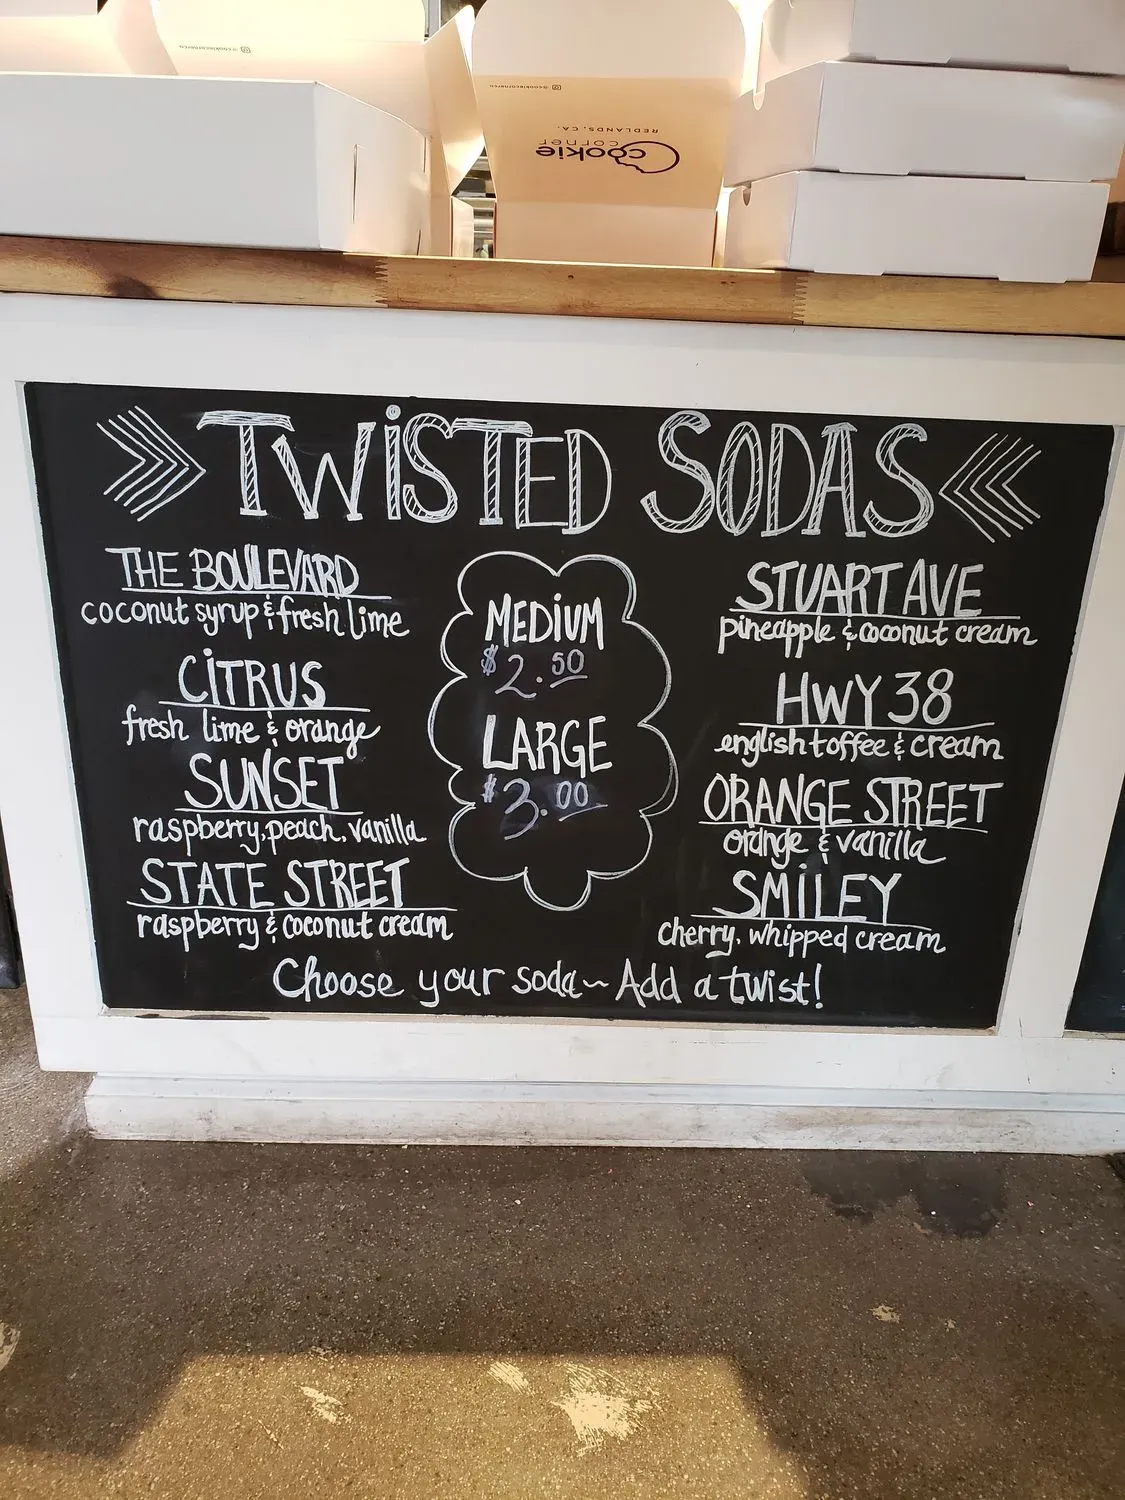 @cookiecornerco
@cookiecornerco
REDLANDS, CA.
cookie
corner
TWISTED SODAS
THE BOULEVARD
coconut syrup & fresh lime
CITRUS
fresh lime & orange
SUNSET
raspberry, peach, vanilla
STATE STREET
raspberry & coconut cream
MEDIUM
$2.50
LARGE
$3.00
STUART AVE
pineapple & coconut cream
HWY 38
english toffee & cream
ORANGE STREET
orange & vanilla
SMILEY
cherry, whipped cream
Choose your soda~ Add a twist!